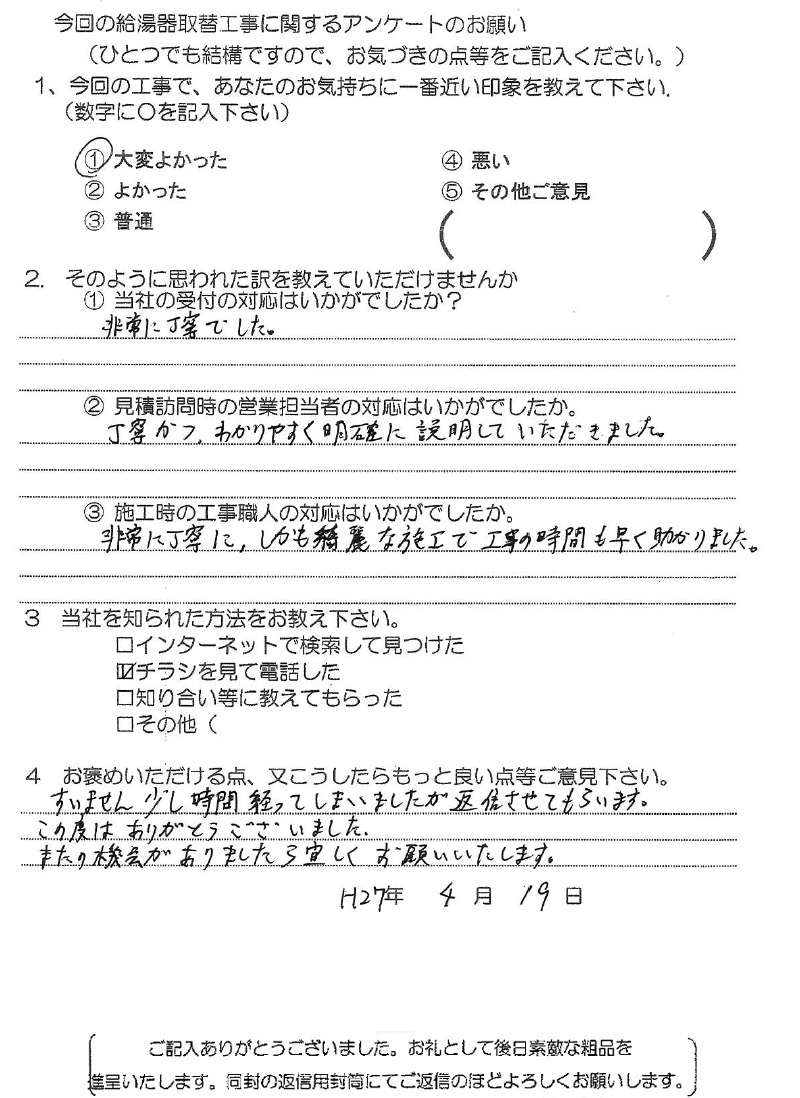 今回の給湯器取替工事に関するアンケートのお願い
（ひとつでも結構ですので、お気づきの点等をご記入ください。）
1、今回の工事で、あなたのお気持ちに一番近い印象を教えて下さい.
（数字に〇を記入下さい）
① 大変よかった ④ 悪い
② よかった ⑤ その他ご意見
③ 普通 （ ）
2. そのように思われた訳を教えていただけませんか
① 当社の受付の対応はいかがでしたか？
非常に丁寧でした。
② 見積訪問時の営業担当者の対応はいかがでしたか。
丁寧かつ、わかりやすく明確に説明していただきました。
③ 施工時の工事職人の対応はいかがでしたか。
非常に丁寧に、しかも綺麗な施工で工事の時間も早く助かりました。
3 当社を知られた方法をお教え下さい。
□インターネットで検索して見つけた
☑チラシを見て電話した
□知り合い等に教えてもらった
□その他（
4 お褒めいただける点、又こうしたらもっと良い点等ご意見下さい。
すいません少し時間経ってしまいましたが返信させてもらいます。
この度はありがとうございました.
またの機会がありましたら宜しくお願いいたします。
H27年 4月 19日
ご記入ありがとうございました。お礼として後日素敵な粗品を
進呈いたします。同封の返信用封筒にてご返信のほどよろしくお願いします。